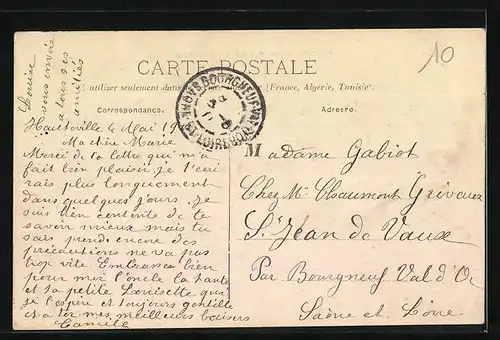 Louise
vous envoie
a tous ses
amitiés
10
CARTE POSTALE
utiliser seulement dans (France, Algérie, Tunisie).
Correspondance.
Adresse.
BOURGNEUF-VAL-D'OR
SAONE-ET-LOIRE
Hauteville 4 Mai 19
Ma chère Marie
Merci de ta lettre qui m'a
fait bien plaisir je t'écri
rais plus longuement
dans quelques jours. Je
suis bien contente de te
savoir mieux mais tu
sais prends encore des
précautions ne va pas
trop vite Embrasses bien
pour moi l'oncle la tante
et ta petite Louisette qui
je l'espère et toujours gentille
et a toi mes meilleurs baisers
Camille
Madame Gabiot
Chez Mr Chaumont Grivaux
St Jean de Vaux
Par Bourgneuf Val d'Or
Saône et Loire